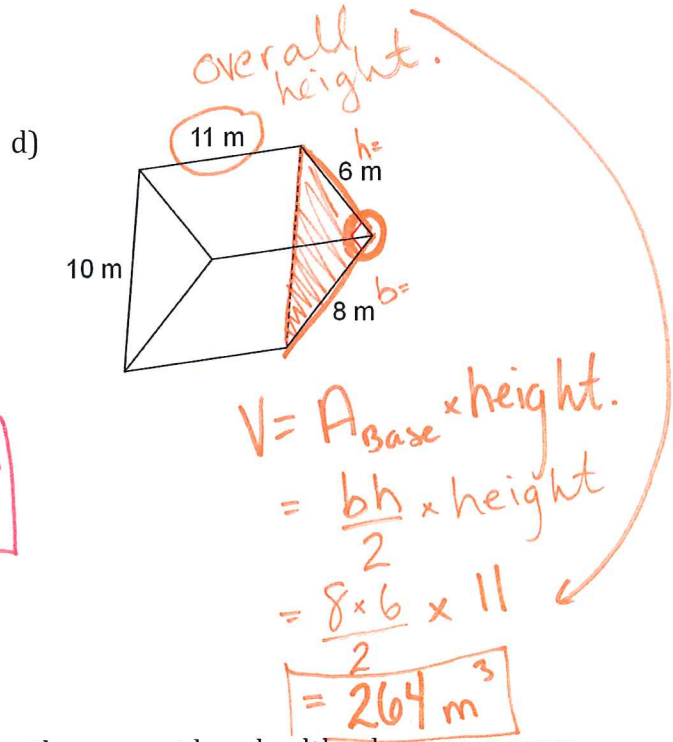 overall
height.
d)
11 m
h=
6 m
10 m
b=
8 m
V = A_Base × height.
= bh/2 × height
= 8×6/2 × 11
= 264 m³